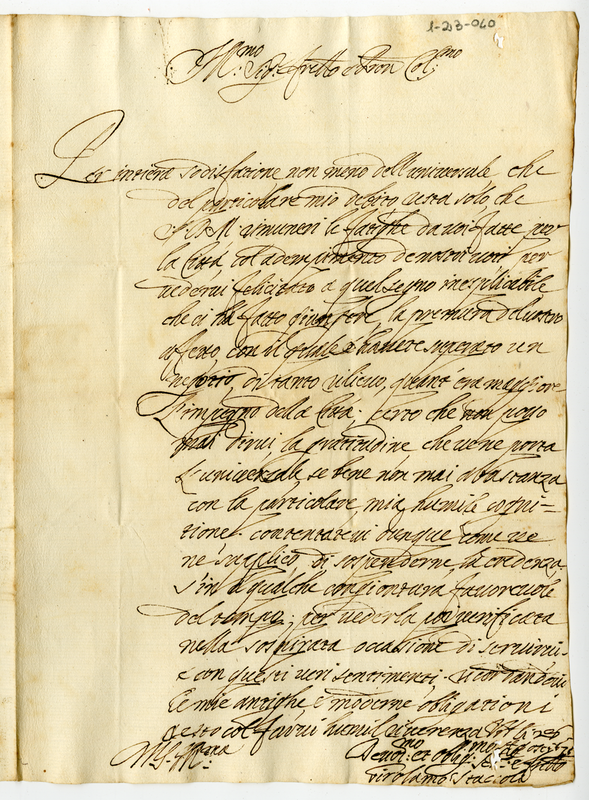 1-23-040
Ill:mo Sig: e Pron Col:mo
Per intiera sodisfatione non meno dell'universale che
del particolare mio debito resta solo, che
V.S. Ill.ma rimuneri le fatighe da voi fatte per
la Città, col adempimento de nostri voti per
vedervi felicitato a quel segno inesplicabile
che ci hà fatto giungere la premura del vostro
affetto con il quale havete superato un
negotio, di tanto rilievo, quant'era maggiore
L'impegno della Città; certo che non posso
mai dirvi la gratitudine che ve ne porta
L'universale se bene non mai abastanza
con la particolare mia humile cogni=
tione. contentatevi dunque come ve
ne supplico di sospenderne la credenza
sin a qualche congiontura favorevole
del tempo, per vederla poi verificata
nella sospirata occasione di servirvi
e con questi veri sentimenti ricordandovi
le mie antighe, e moderne obligationi
resto col farvi humil riverenza
V.S. Ill:ma
Devot:mo et Oblig:mo
Girolamo Staccola